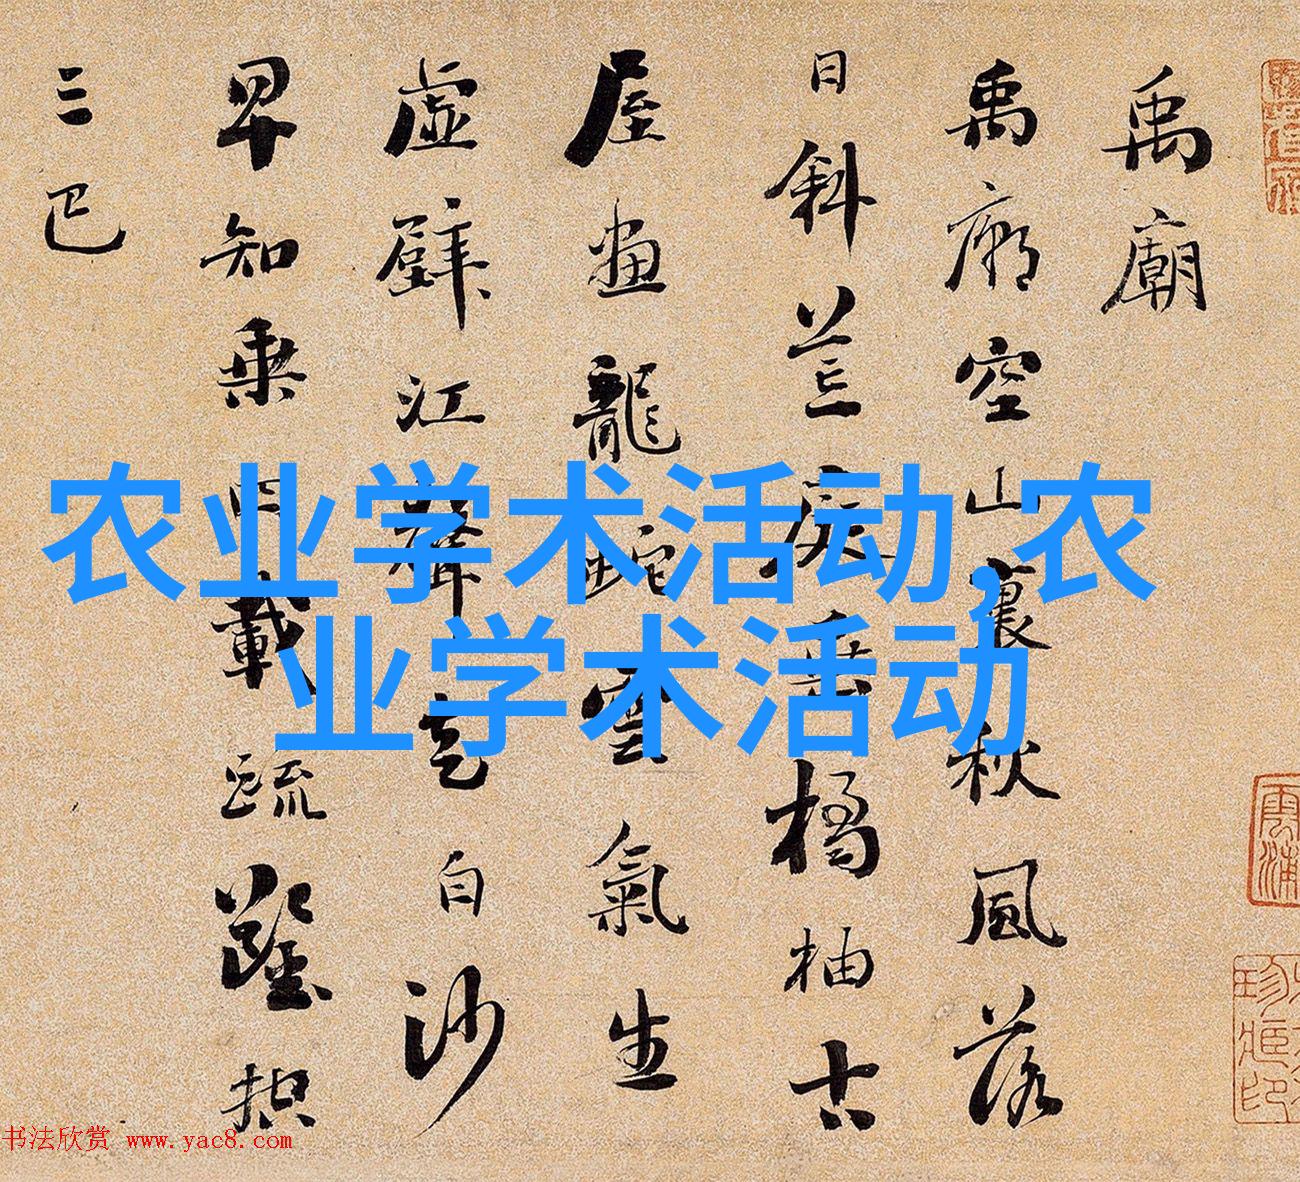 禹廟
禹廟空山裏秋風落
日斜荒庭垂橘柚古
屋畫龍蛇雲氣生
虛壁江聲走白沙
早知乘四載疏鑿控
三巴
农业学术活动,农
业学术活动
书法欣赏 www.yac8.com